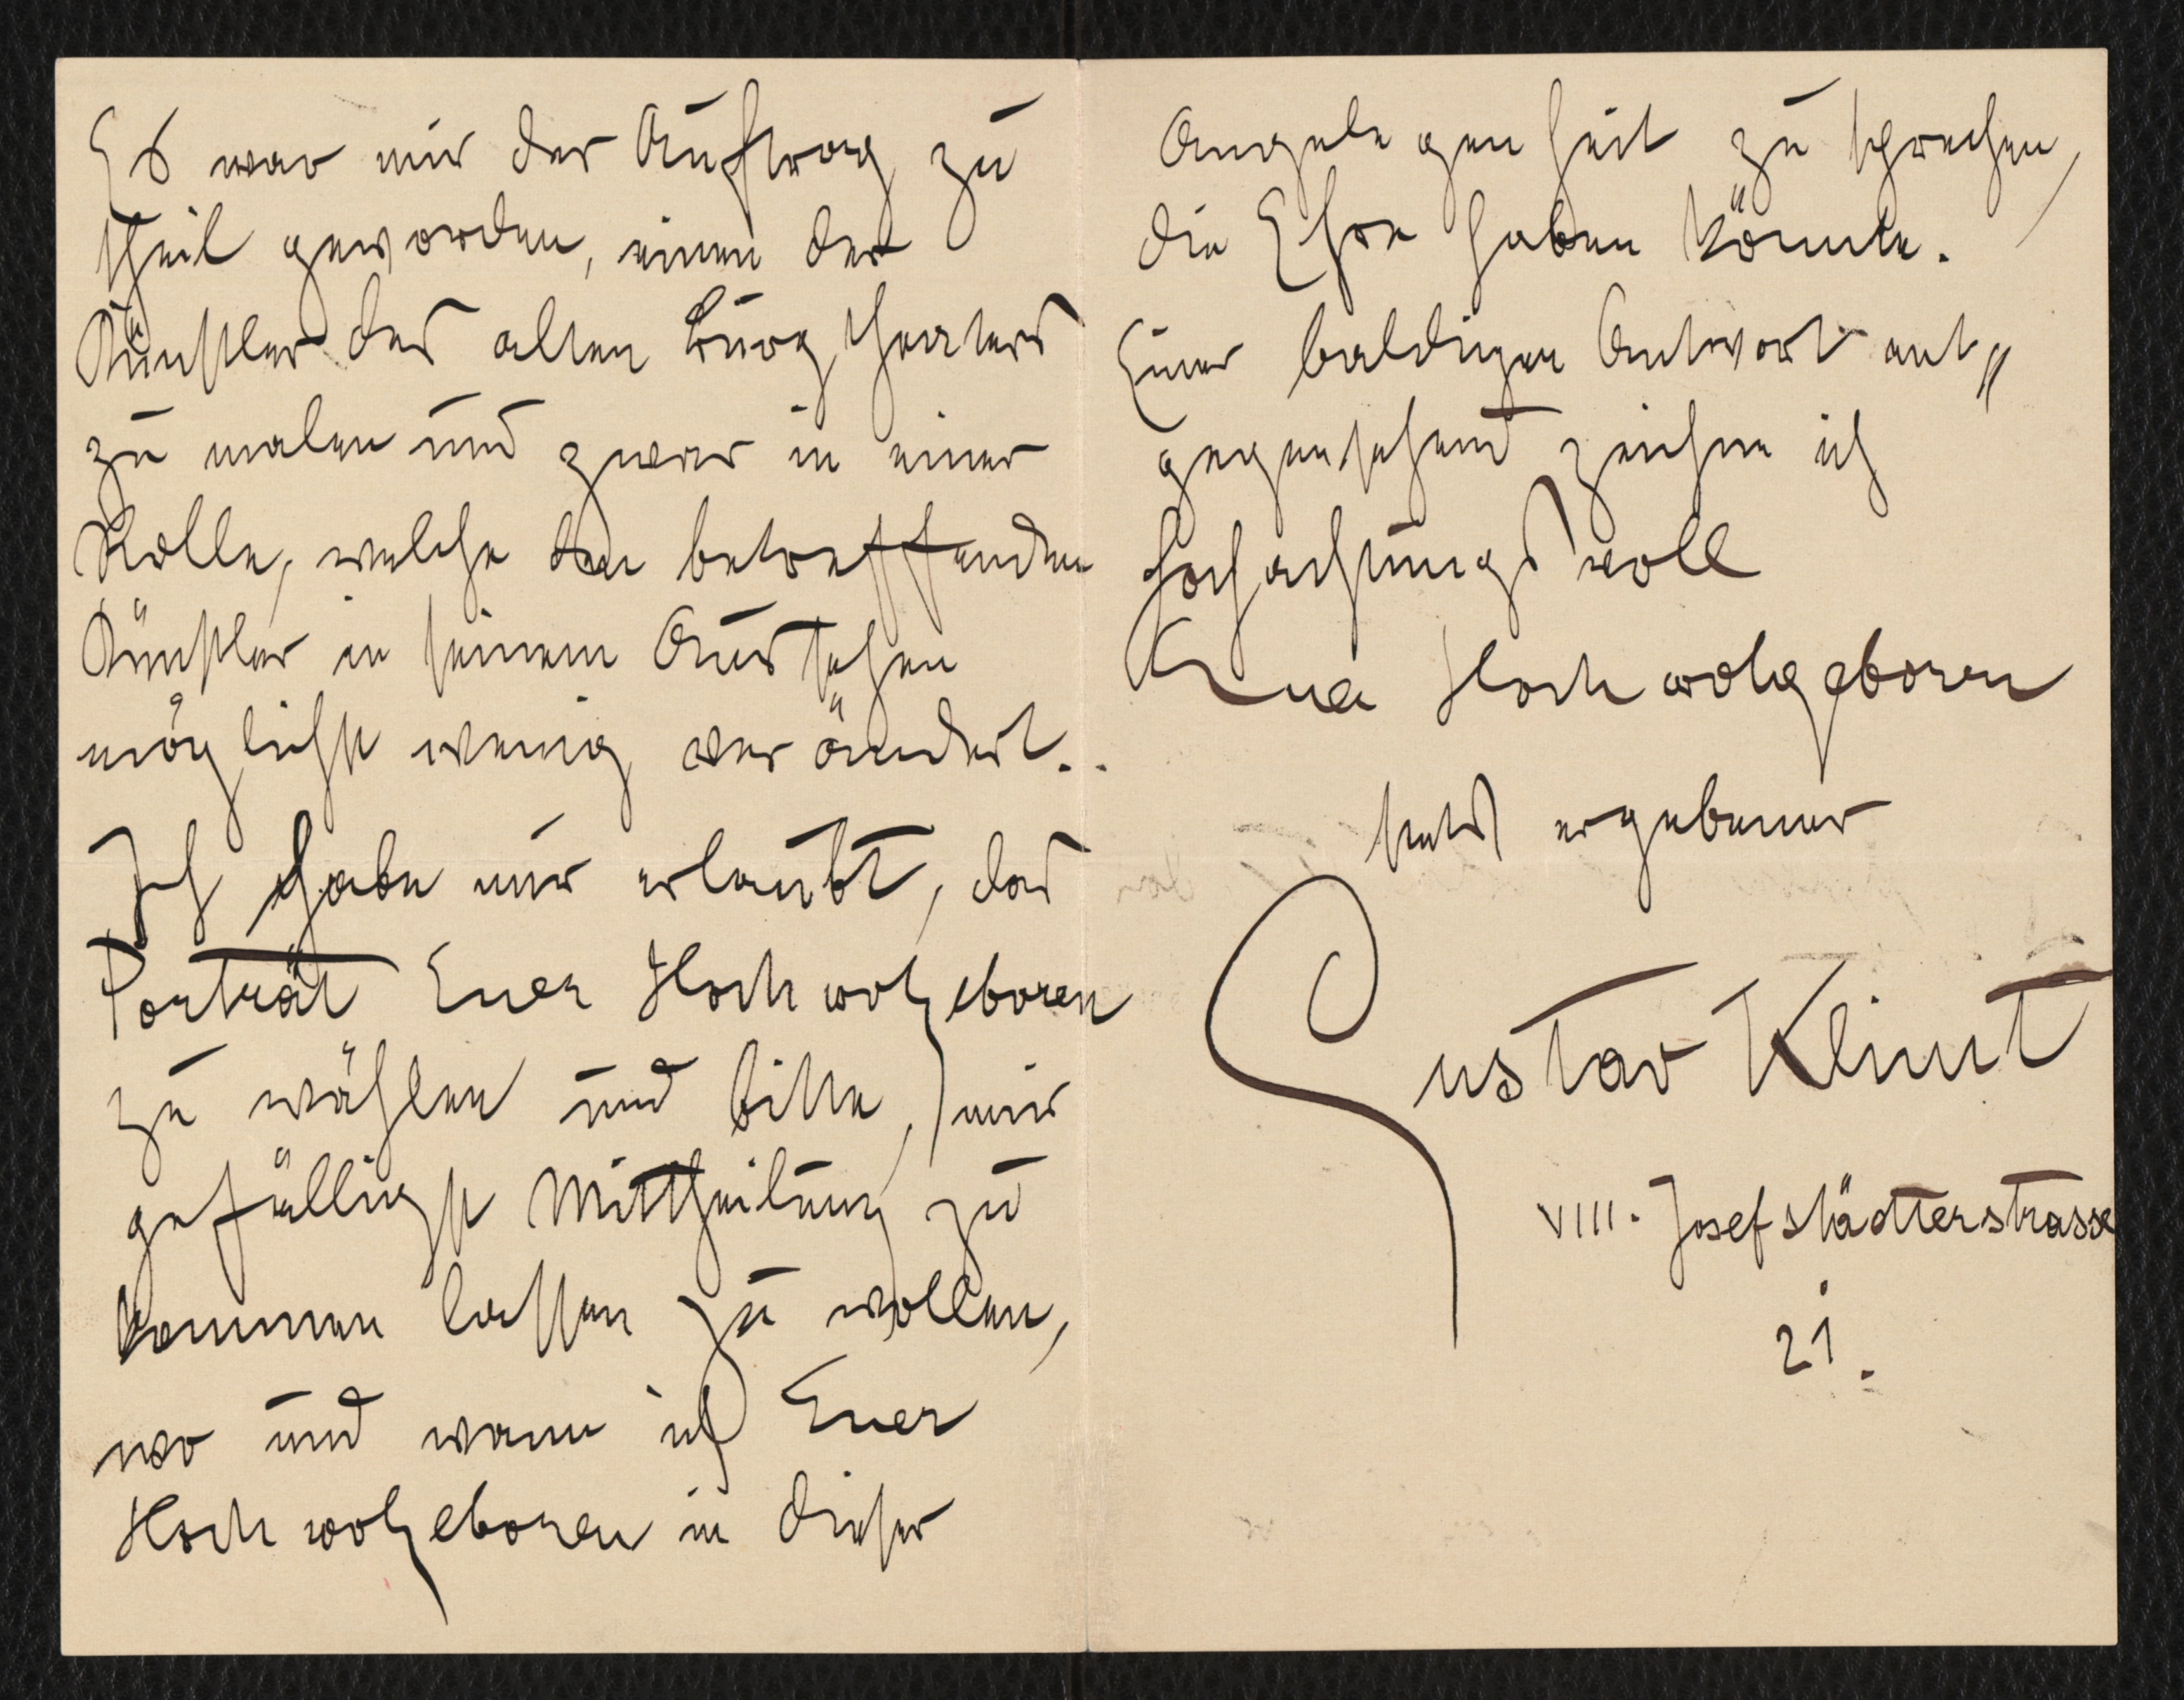 Es war mir der Auftrag zu
theil geworden, einen der
Künstler des alten Burgtheaters
zu malen und zwar in einer
Rolle, welche den betreffenden
Künstler in seinem Aussehen
möglichst wenig verändert.
Ich habe mir erlaubt, das
Porträt Euer Hochwolgeboren
zu wählen und bitte, mir
gefälligst Mittheilung zu
kommen lassen zu wollen,
wo und wann ich Euer
Hochwolgeboren in dieser
Angelegenheit zu sprechen,
die Ehre haben könnte.
Einer baldigen Antwort ent„
gegensehend zeichne ich
hochachtungsvoll
Euer Hochwolgeboren
stets ergebener
Gustav Klimt
VIII. Josefstädterstrasse
21.